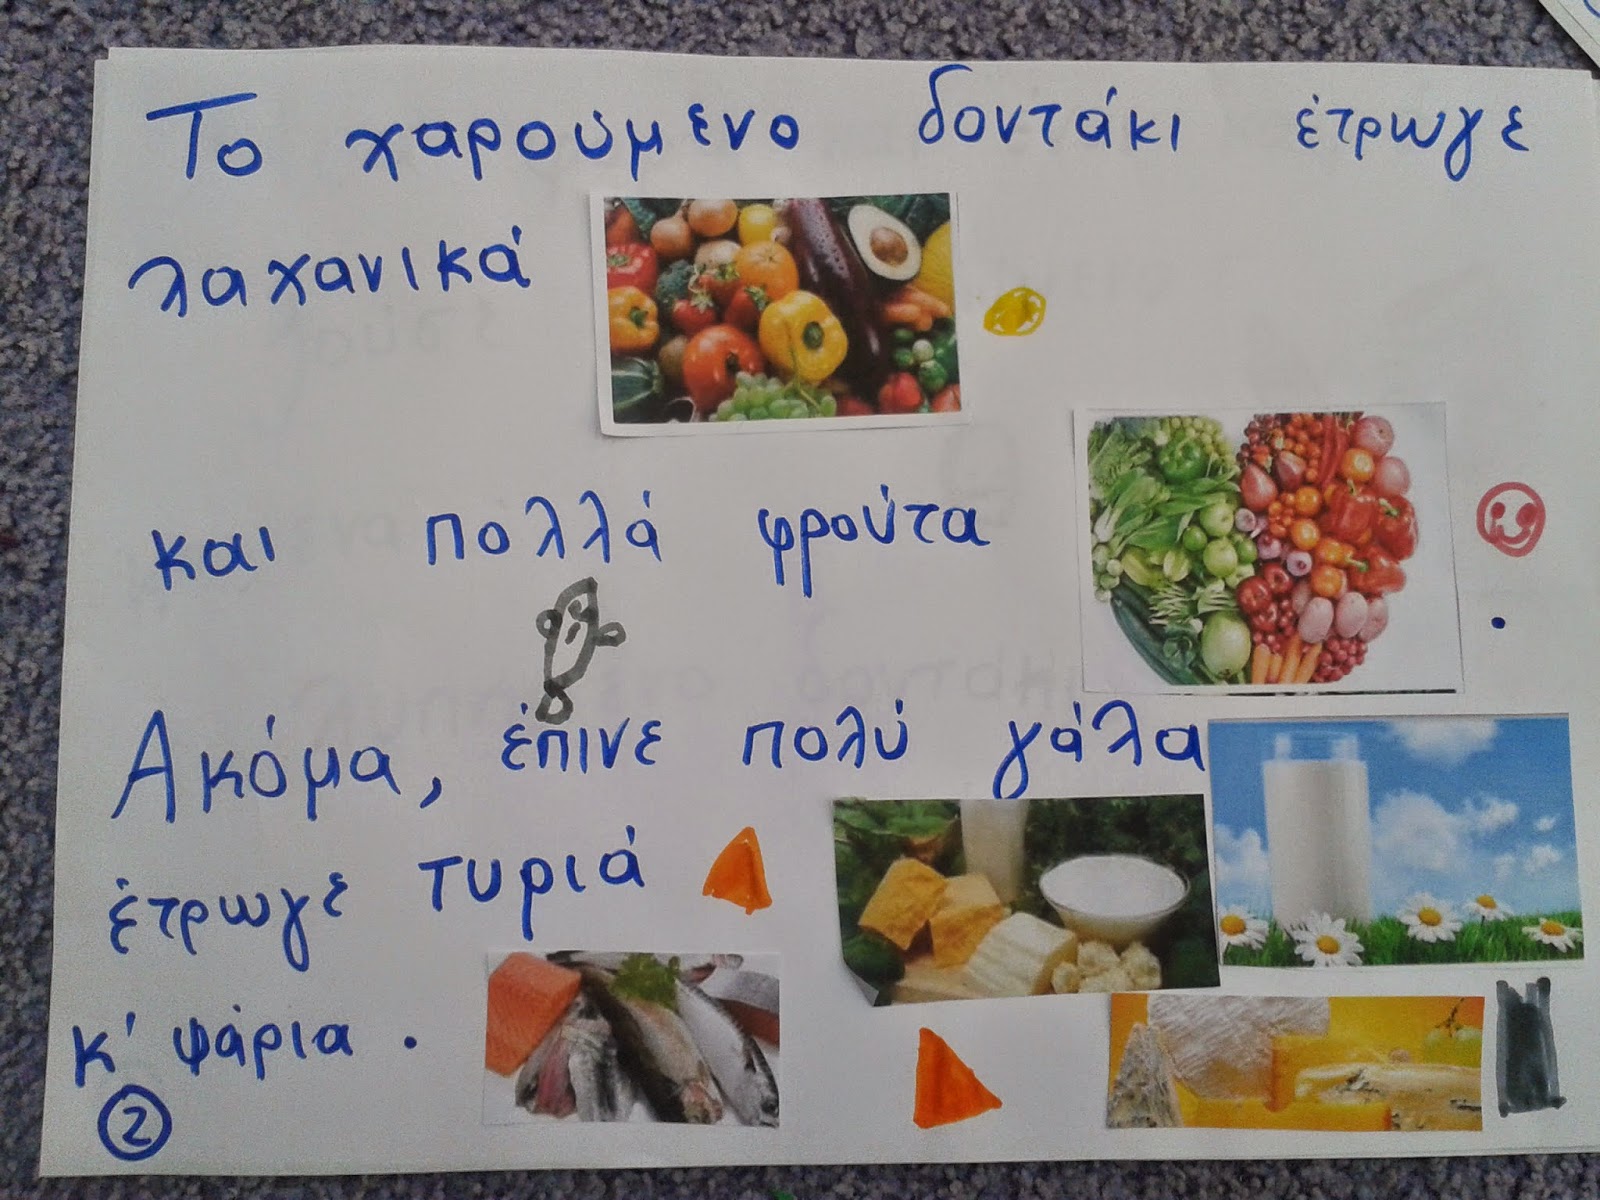 Το χαρούμενο δοντάκι έτρωγε
λαχανικά
και πολλά φρούτα
Ακόμα, έπινε πολύ γάλα
έτρωγε τυριά
κ' ψάρια.
2